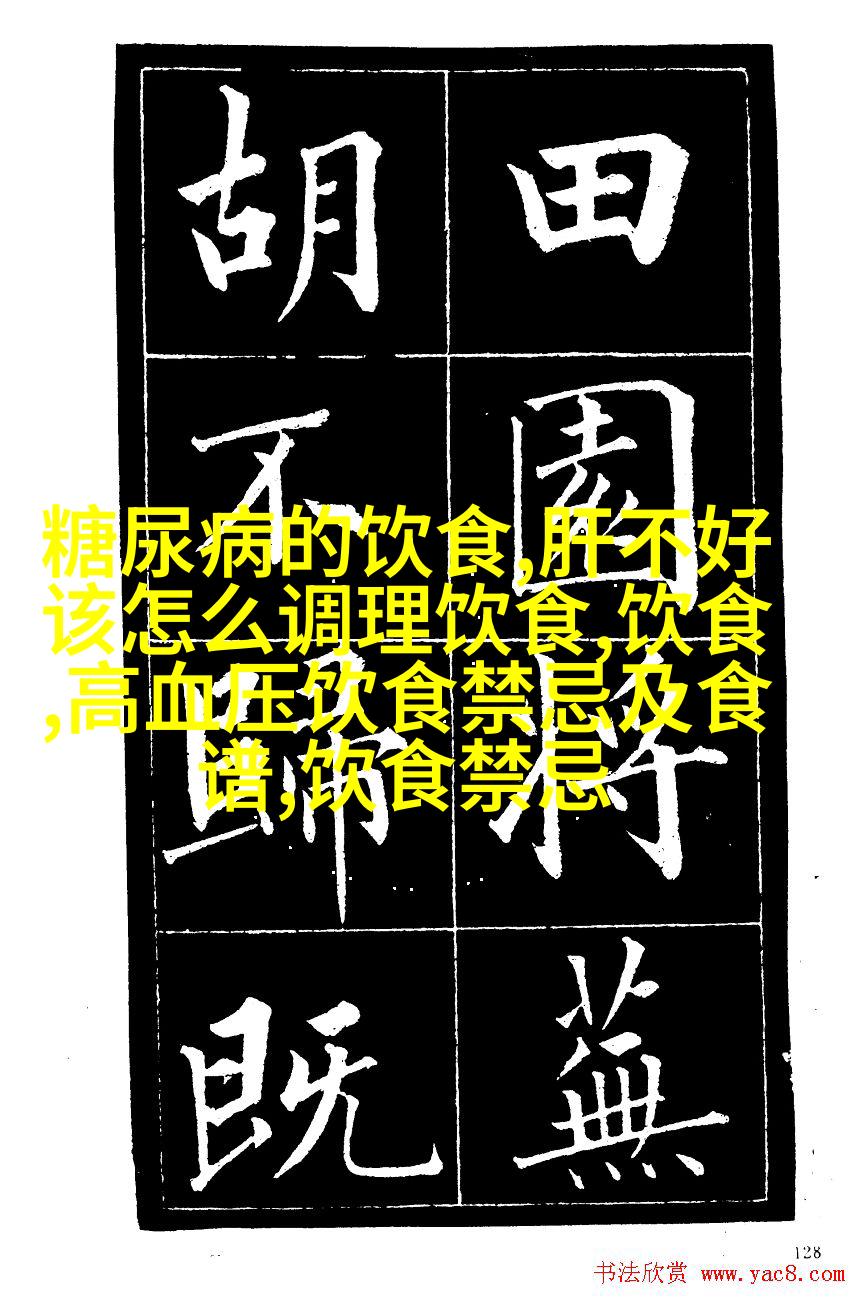 田園將蕪
胡不歸既
糖尿病的饮食,肝不好
该怎么调理饮食,饮食
,高血压饮食禁忌及食
谱,饮食禁忌
128
书法欣赏 www.yac8.com